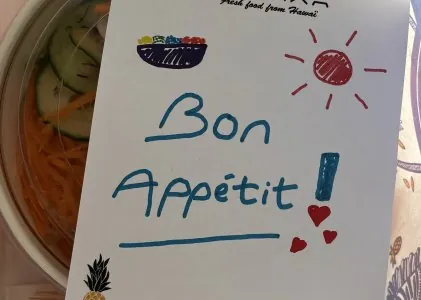 Fresh food from Hawaï
Bon
Appétit !